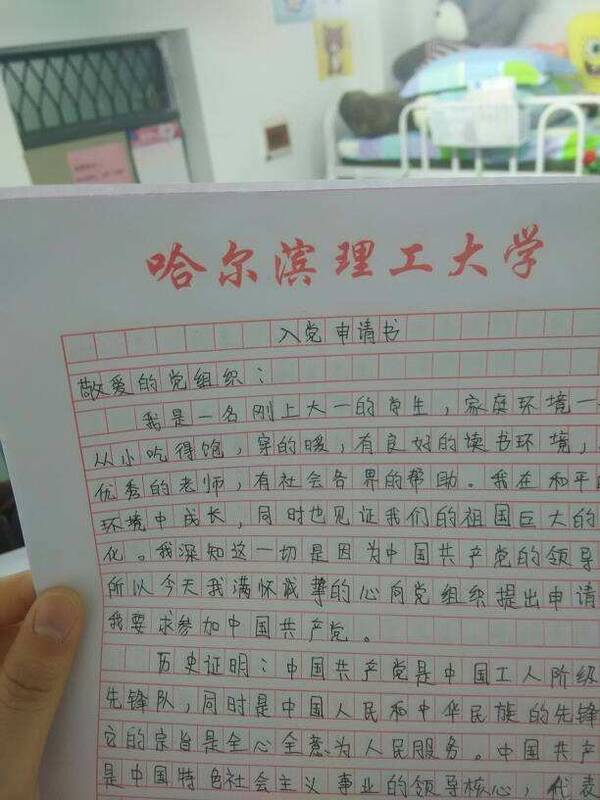 哈尔滨理工大学
入党申请书
敬爱的党组织：
我是一名刚上大一的学生，家庭环境一
从小吃得饱，穿的暖，有良好的读书环境，
优秀的老师，有社会各界的帮助。我在和平
环境中成长，同时也见证我们的祖国巨大的
化。我深知这一切是因为中国共产党的领导
所以今天我满怀诚挚的心向党组织提出申请
我要求参加中国共产党。
历史证明：中国共产党是中国工人阶级
先锋队，同时是中国人民和中华民族的先锋
它的宗旨是全心全意为人民服务。中国共产
是中国特色社会主义事业的领导核心，代表